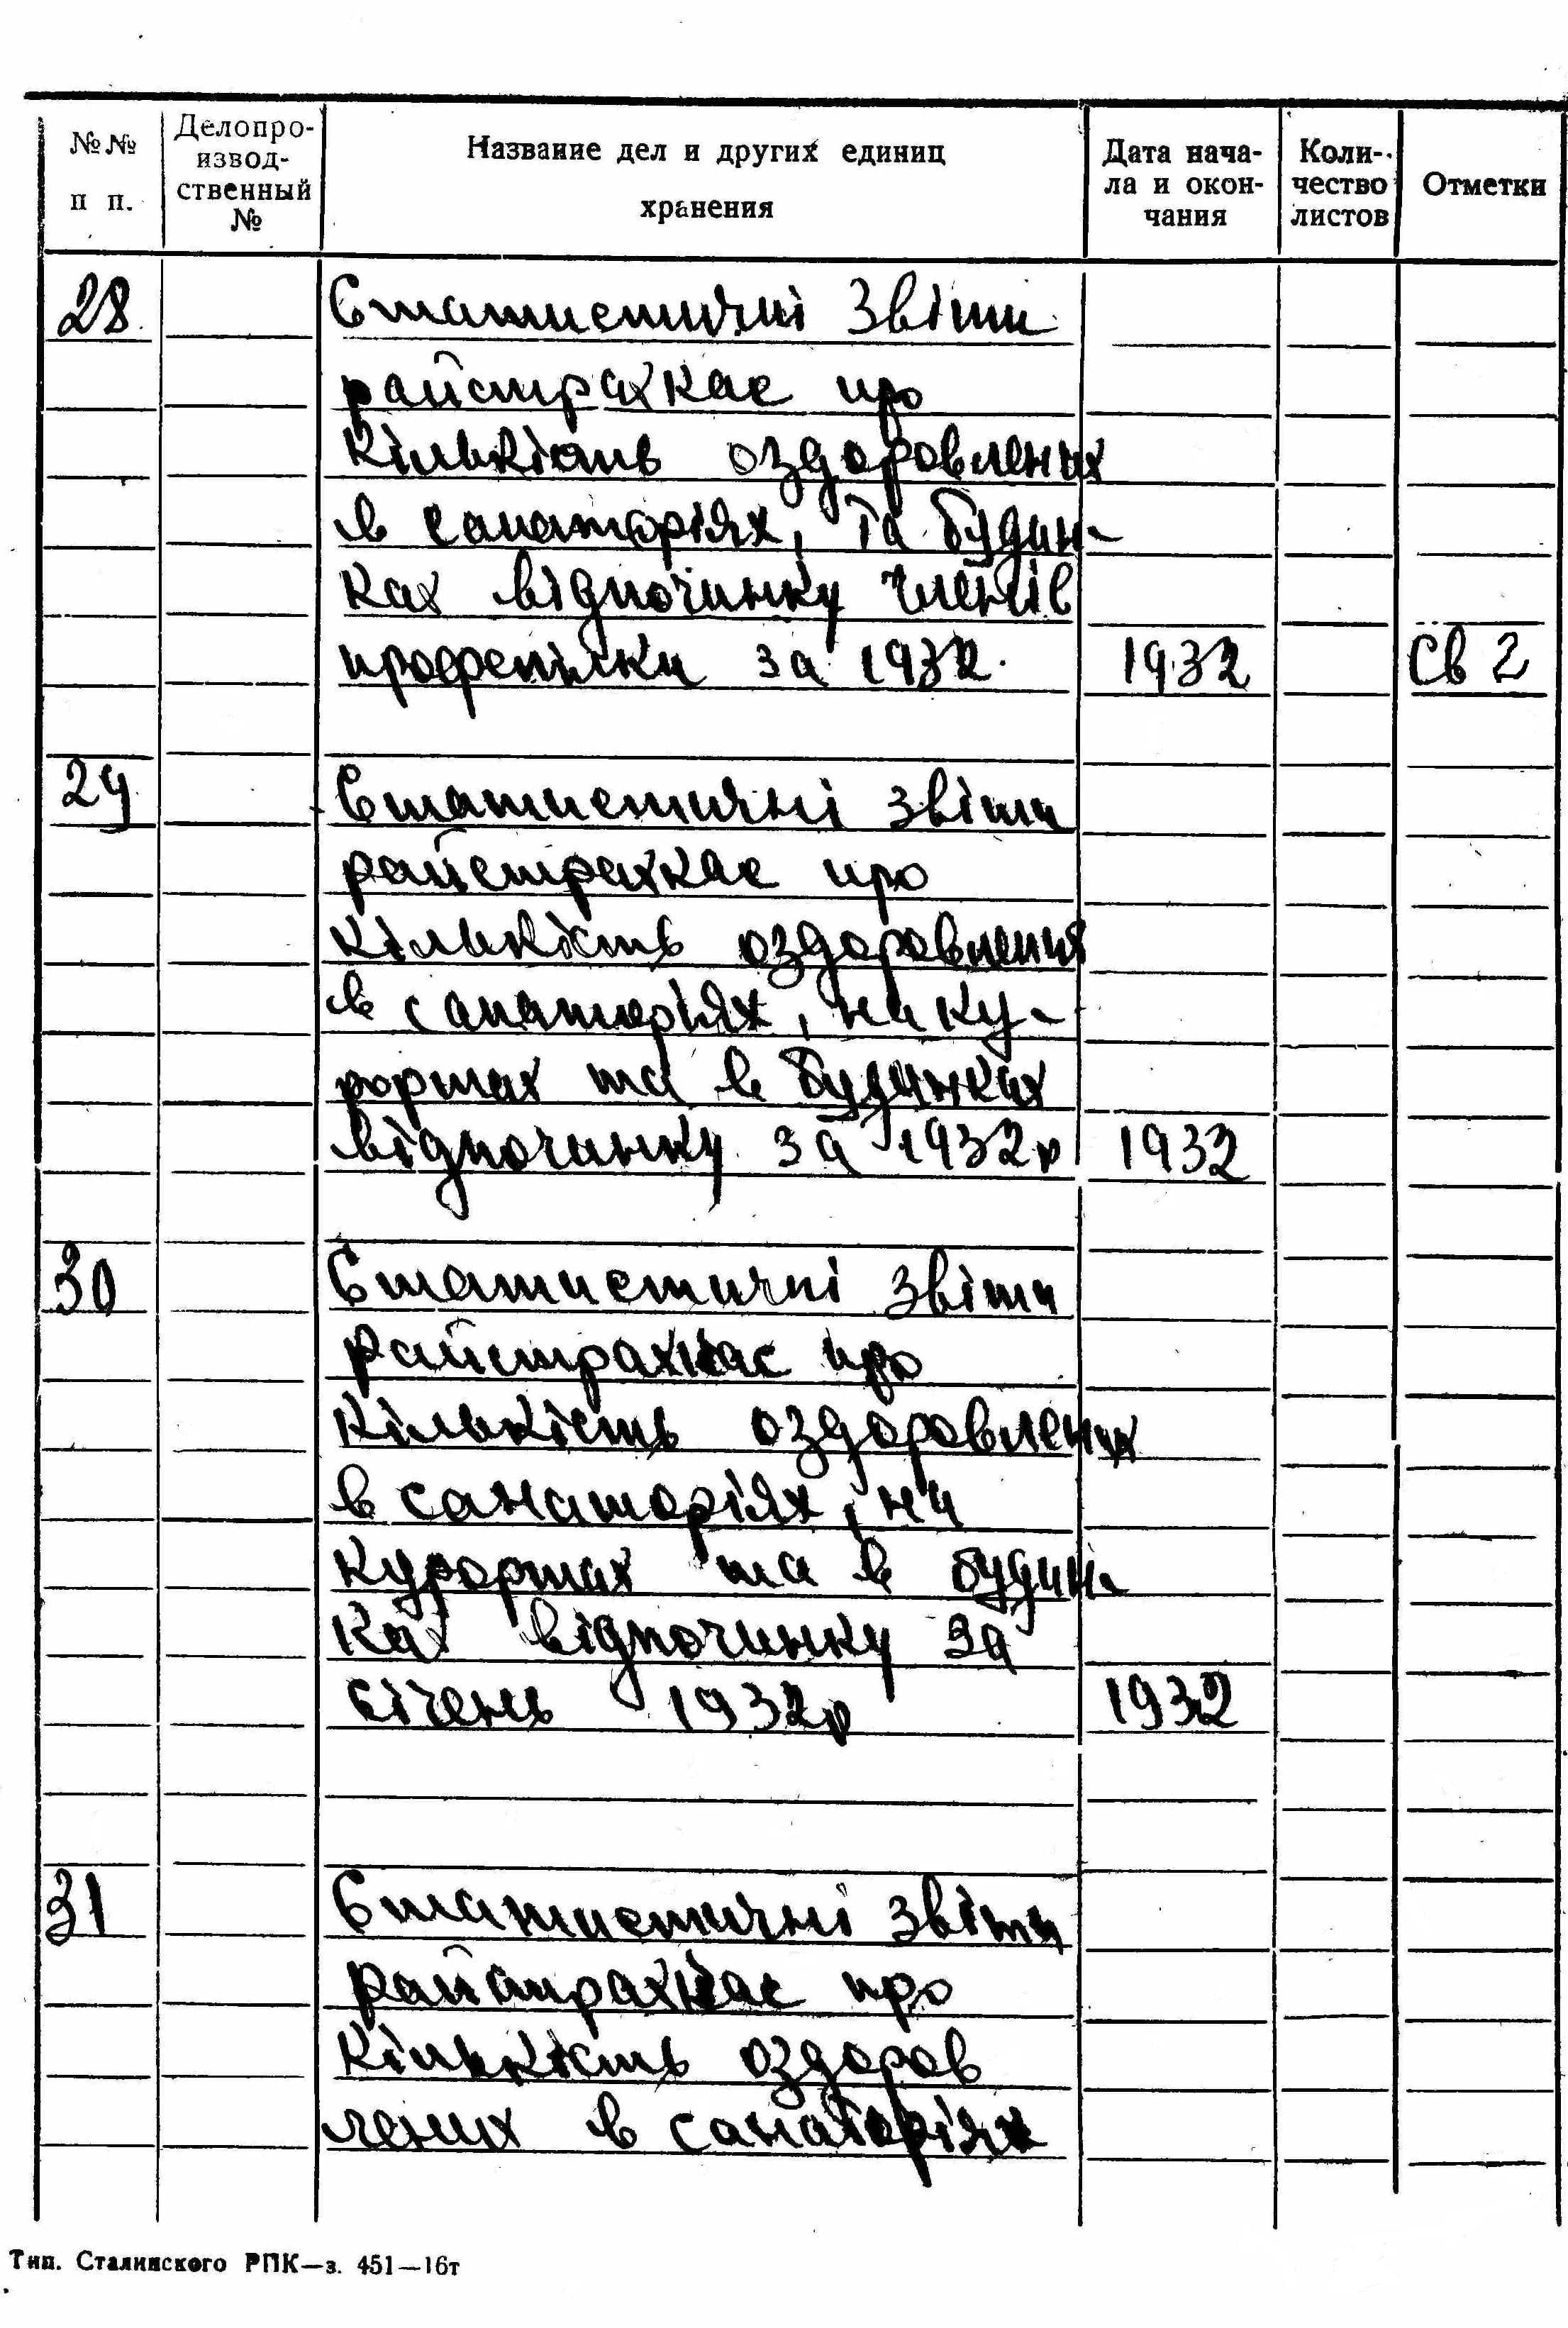 №№ п п.
Делопро-
извод-
ственный
№
Название дел и других единиц
хранения
Дата нача-
ла и окон-
чания
Коли-
чество
листов
Отметки
28 Статистичні звіти
райстрахкас про
кількість оздоровлених
в санаторіях, та будин-
ках відпочинку членів
профспілки за 1932. 1932 Св 2
29 Статистичні звіти
райстрахкас про
кількість оздоровлених
в санаторіях, на ку-
рортах та в будинках
відпочинку за 1932р 1932
30 Статистичні звіти
райстрахкас про
кількість оздоровлених
в санаторіях, на
курортах та в будин-
ках відпочинку за
січень 1932р 1932
31 Статистичні звіти
райстрахкас про
кількість оздоров
лених в санаторіях
Тип. Сталинского РПК—з. 451—16т